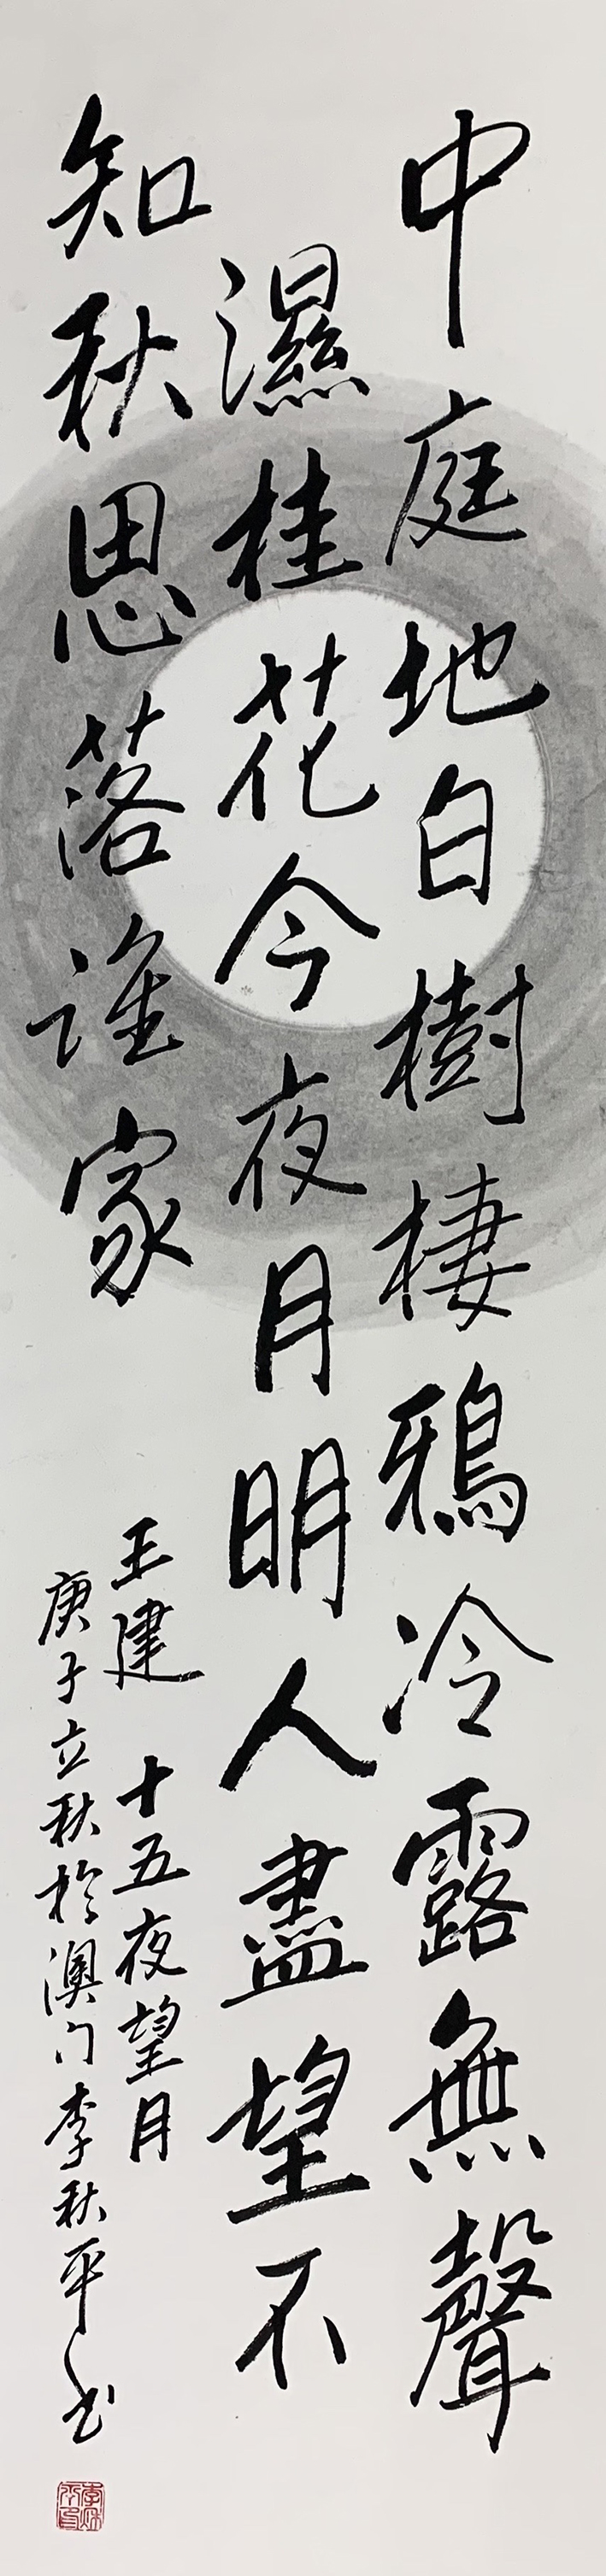 中庭地白樹棲鴉冷露無聲
濕桂花今夜月明人盡望不
知秋思落誰家
王建 十五夜望月
庚子立秋於澳门李秋平书